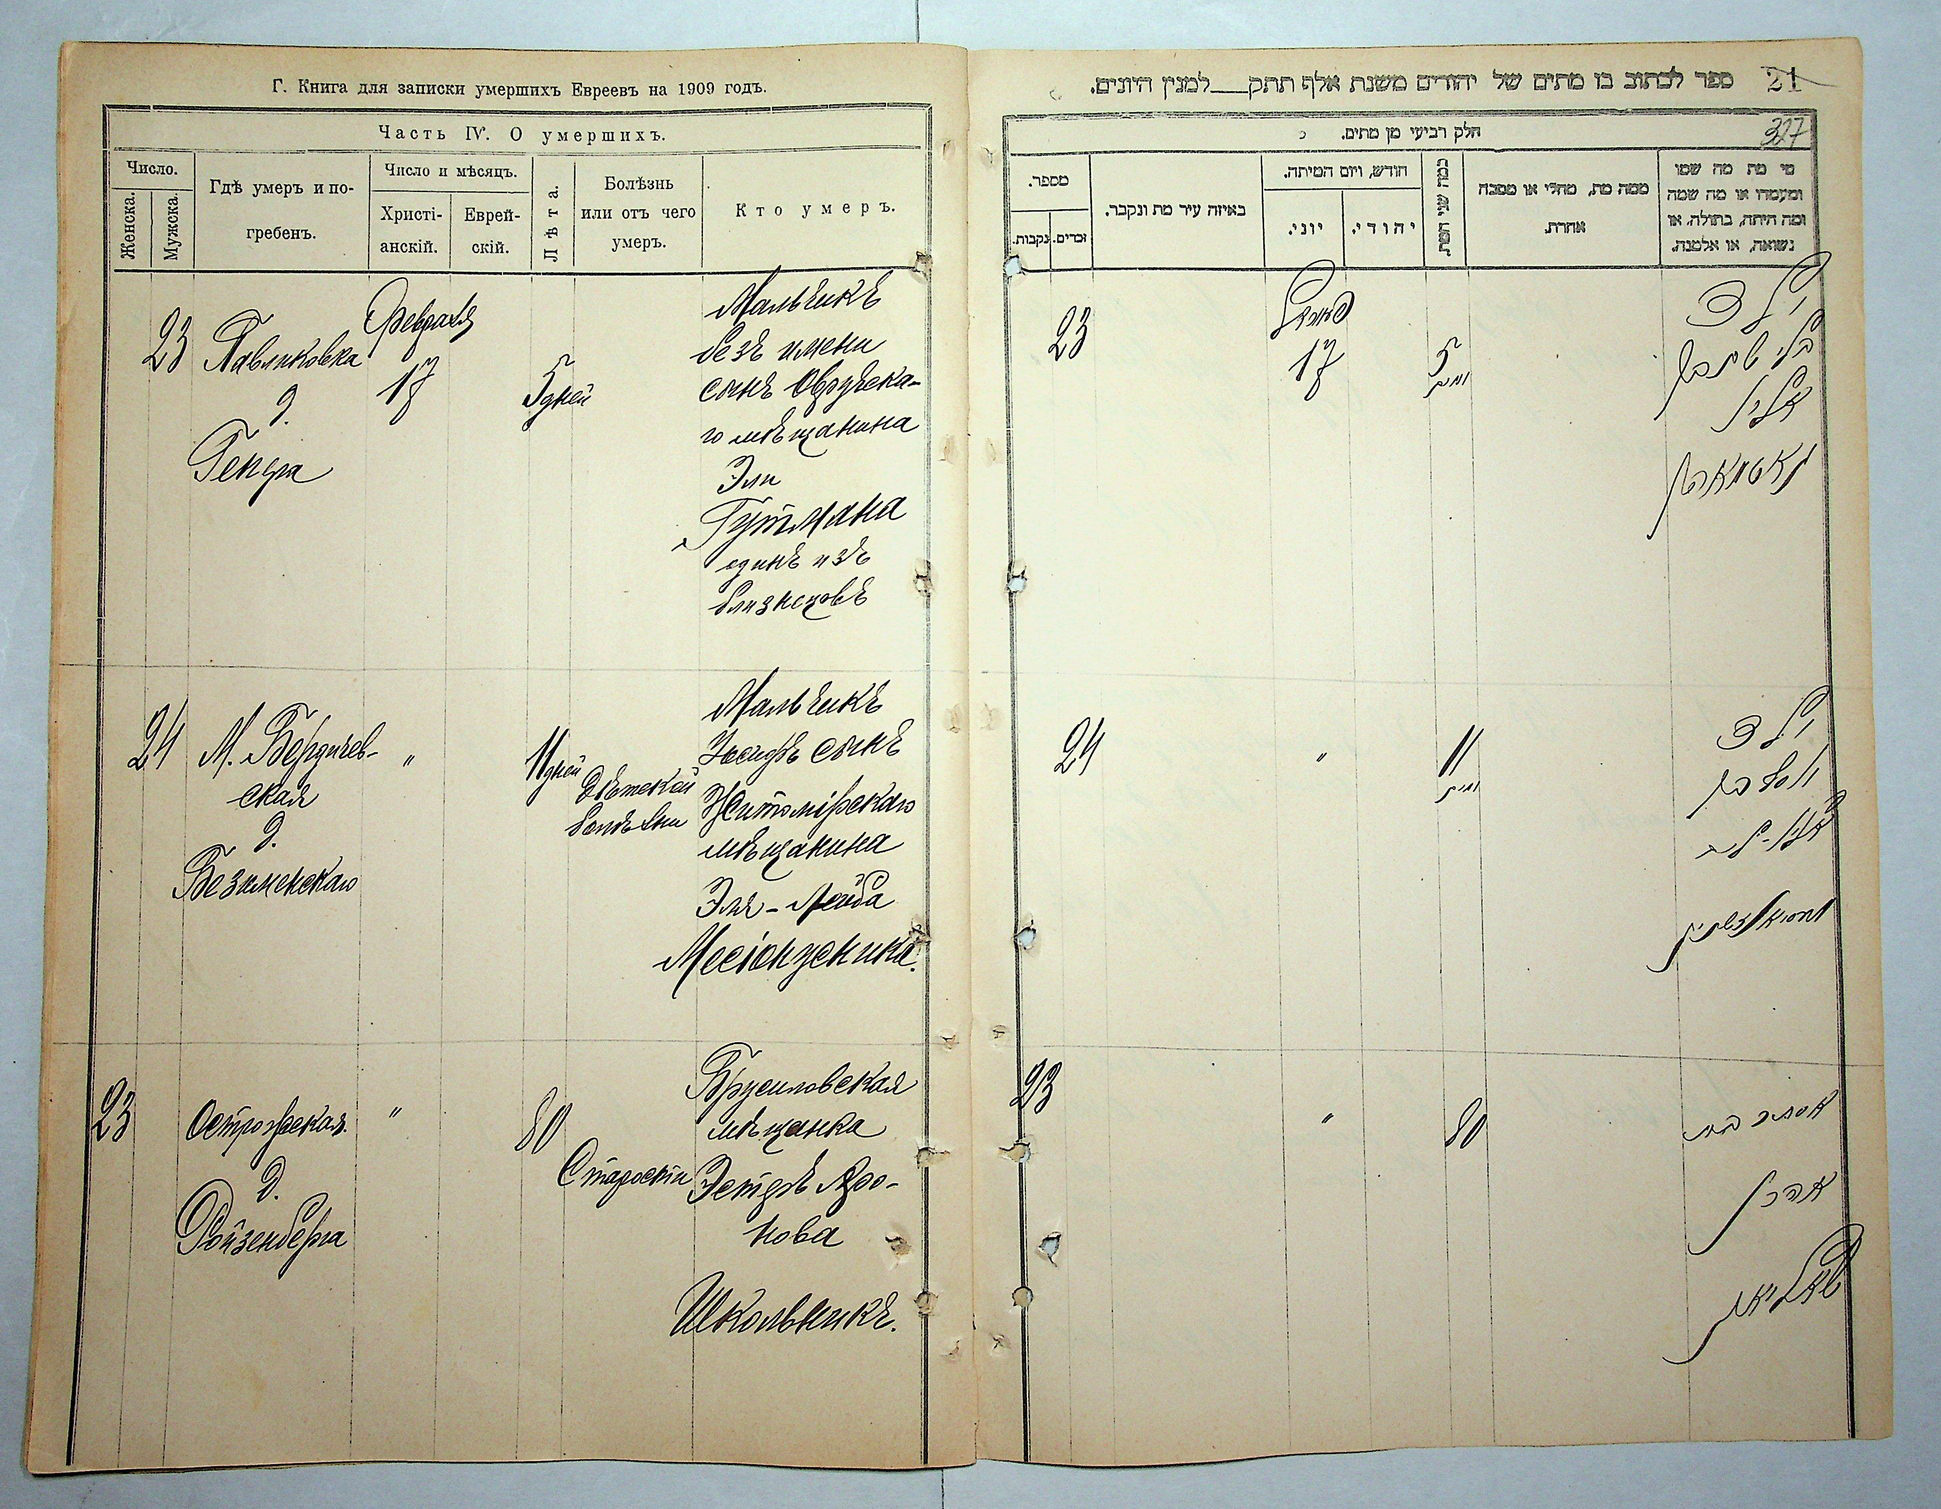 Г. Книга для записки умершихъ Евреевъ на 1909 годъ.
Часть IV. О умершихъ.
Число.
Женска.
Мужска.
Гдѣ умеръ и по-
гребенъ.
Число и мѣсяцъ.
Христі-
анскій.
Еврей-
скій.
Лѣта.
Болѣзнь
или отъ чего
умеръ.
Кто умеръ.
23
Павликовка
д.
Генера
Февраля
17
5 дней
Мальчикъ
безъ имени
сынъ Овручска-
го мѣщанина
Эли
Гутмана
одинъ изъ
близнецовъ
24
М. Бердичев-
ская
д.
Безименскаго
"
11 дней
Дѣтской
болѣзни
Мальчикъ
Іосифъ сынъ
Житомірскаго
мѣщанина
Эля-Лейба
23
Острожская
д.
Ройзенберга
"
80
Старости
Брусиловская
мѣщанка
Эстеръ Аро-
нова
Школьникъ.
ספר לכתוב בו מתים של יהודים משנת אלף תתק___למנין היונים.
21
327
חלק רביעי מן מתים.
מספר.
נקבות.
זכרים.
באיזה עיר מת ונקבר.
חודש, ויום המיתה.
יוני.
יהודי.
כמה שני המת.
ממה מת, מחלי או מסבה
אחרת.
מי מת מה שמו
ומעמדו או מה שמה
ומה היתה, בתולה, או
נשואה, או אלמנה.
23
17
5
ימים
ילד
בלי שם בן
אלי
גוטמאן
24
"
11
ימים
ילד
יוסף בן
23
"
80
אסתר בת
אהרן
שקאלניק